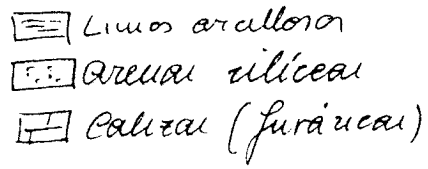 Limos arcillosos
Arenas silíceas
Calizas (Jurásicas)